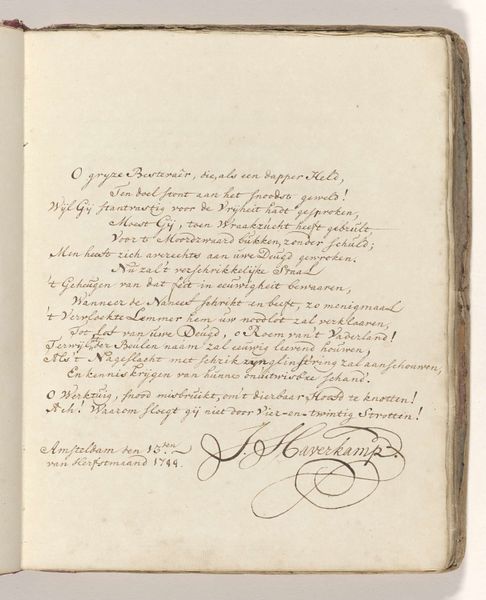 O gryze Bestevaêr, die, als een dapper Held,
Ten doel stont aan het snoodste geweld!
Wyl Gij standvastig voor de Vryheit hadt gesproken,
Moest Gij, toen Wraakzucht heeft gebrult,
Voor 't Moordzwaard bukken, zonder schuld;
Men heeft zich averechts aan uwe Deugd gewroken.
Nu zal 't verschrikkelijke Staal
't Geheugen van dat feit in eeuwigheit bewaaren,
Wanneer de Naneef schrikt en beeft, zo menigmaal
't Vervloekte Lemmer hem uw noodlot zal verklaaren,
Tot Lof van uwe Deugd, o Roem van 't Vaderland!
Terwyl het der Beulen naam zal eeuwig leevend houwen,
Als 't Nageslacht met schrik zyn glinstring zal aanschouwen,
En kennis krygen van hunne onuitwisbre schand.
O Werktuig, snood misbruikt, om 't dierbaar Hoofd te knotten!
Ach! Waarom sloegt gij niet door Vier-en-twintig Strotten!
Amsteldam den 13.den
van Herfstmaand 1744.
J. Haverkamp.